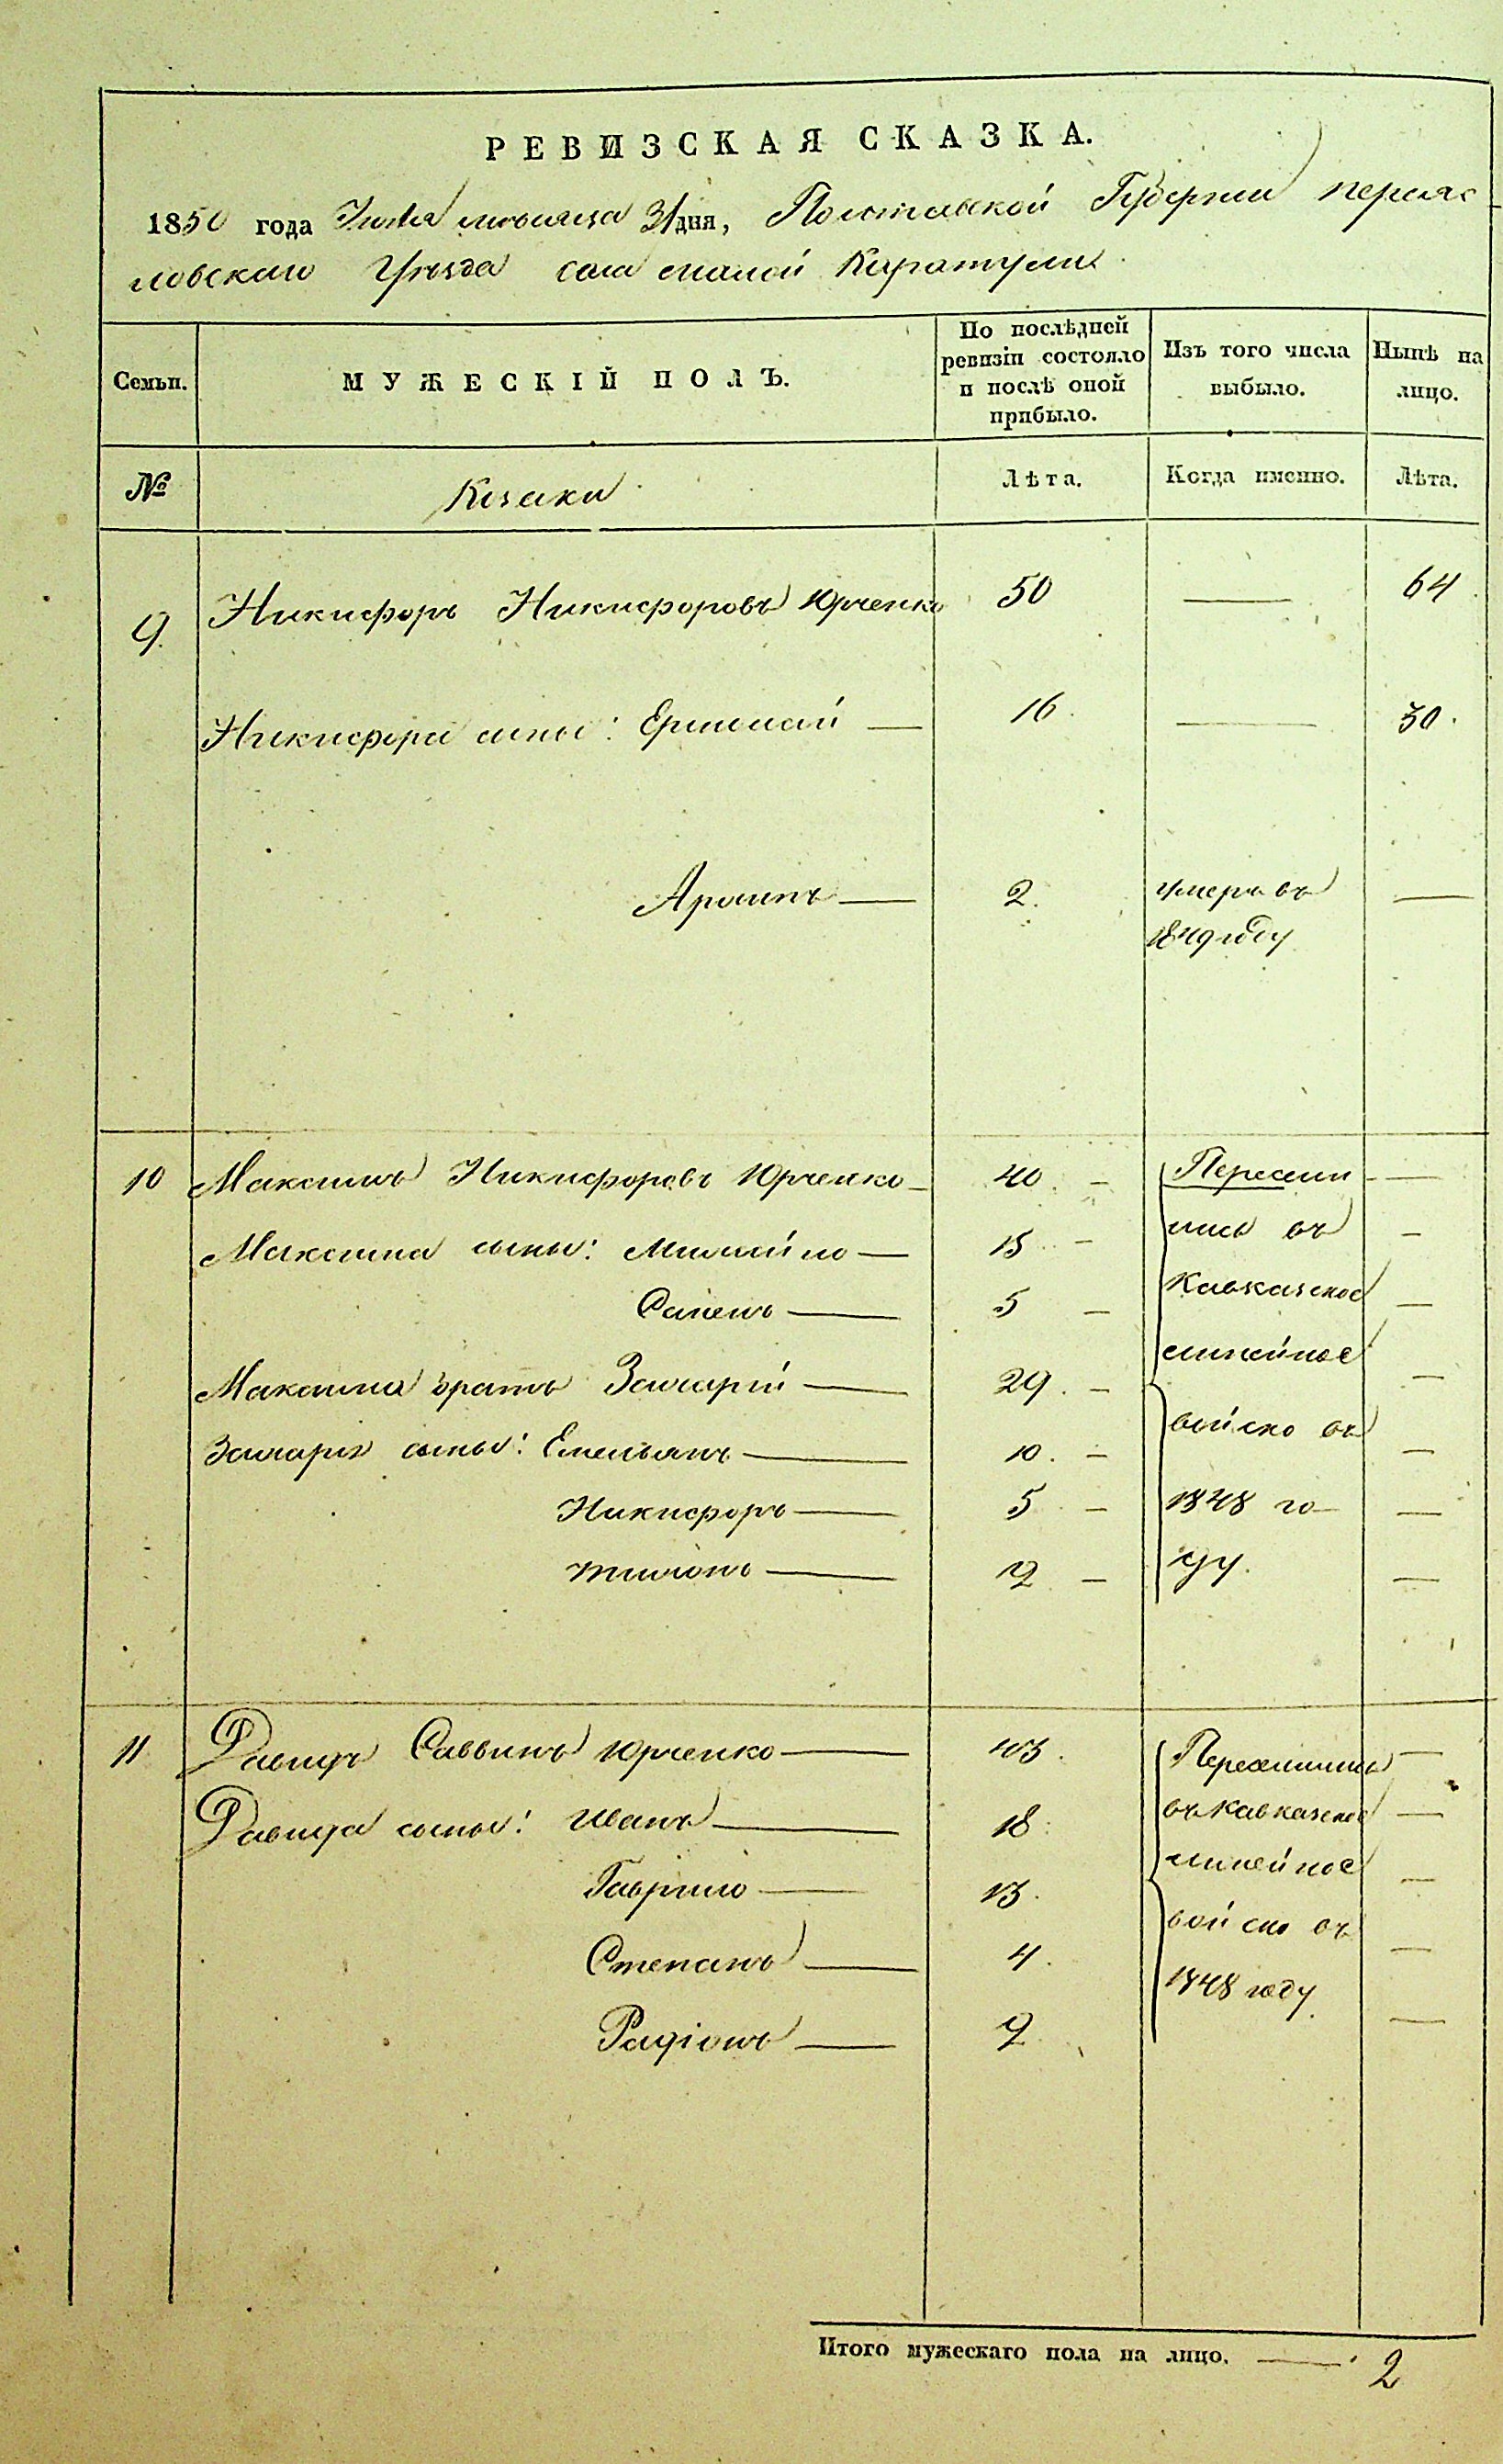 РЕВИЗСКАЯ СКАЗКА.
1850 года Июля месяца 31 дня, Полтавской Губернии переяс
ловскаго Уѣзда села малой Каратули
Семьи.
МУЖЕСКІЙ ПОЛЪ.
По послѣдней ревизіи состояло и послѣ оной прибыло.
Изъ того числа выбыло.
Нынѣ на лицо.
№
Козаки
Лѣта.
Когда именно.
Лѣта.
9. Никифоръ Никифоровъ Юрченко 50 — 64
Никифора сыны: Ермолай — 16. — 30.
2. умеръ въ —
1849 году
10 Максимъ Никифоровъ Юрченко — 40. — Пересели —
Максима сыны: Михайло — 15 — лись въ —
Семенъ — 5 — Кавказское —
Максима братъ Захарій — 29. — линейное —
Захарія сыны: Емельянъ — 10. — войско въ —
Никифоръ — 5 — 1848 го —
тихонъ — 2 — ду. —
11 Давидъ Саввинъ Юрченко — 43. Переселились —
Давида сыны: Иванъ — 18. въ Кавказское —
Гаврило — 13. линейное —
Степанъ — 4. войско въ —
Радіонъ — 2 1848 году. —
Итого мужескаго пола на лицо. — 2